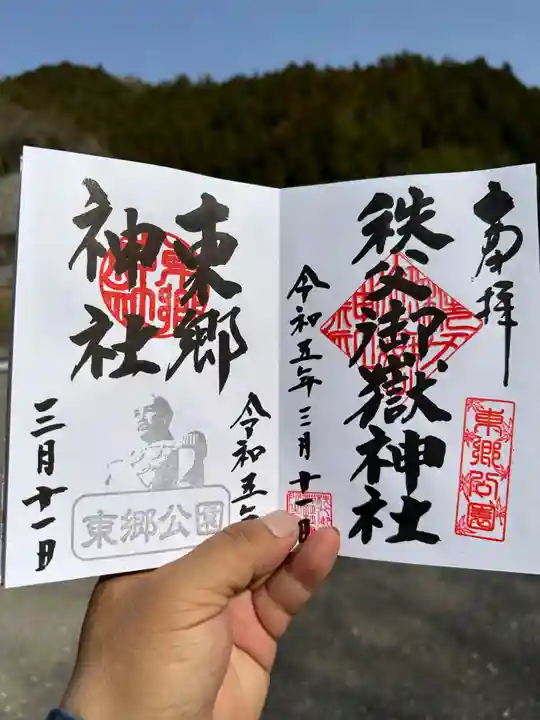 奉拝
東郷公園
秩父御嶽神社
令和五年三月十一日
東郷
神社
令和五年
三月十一日
東郷公園